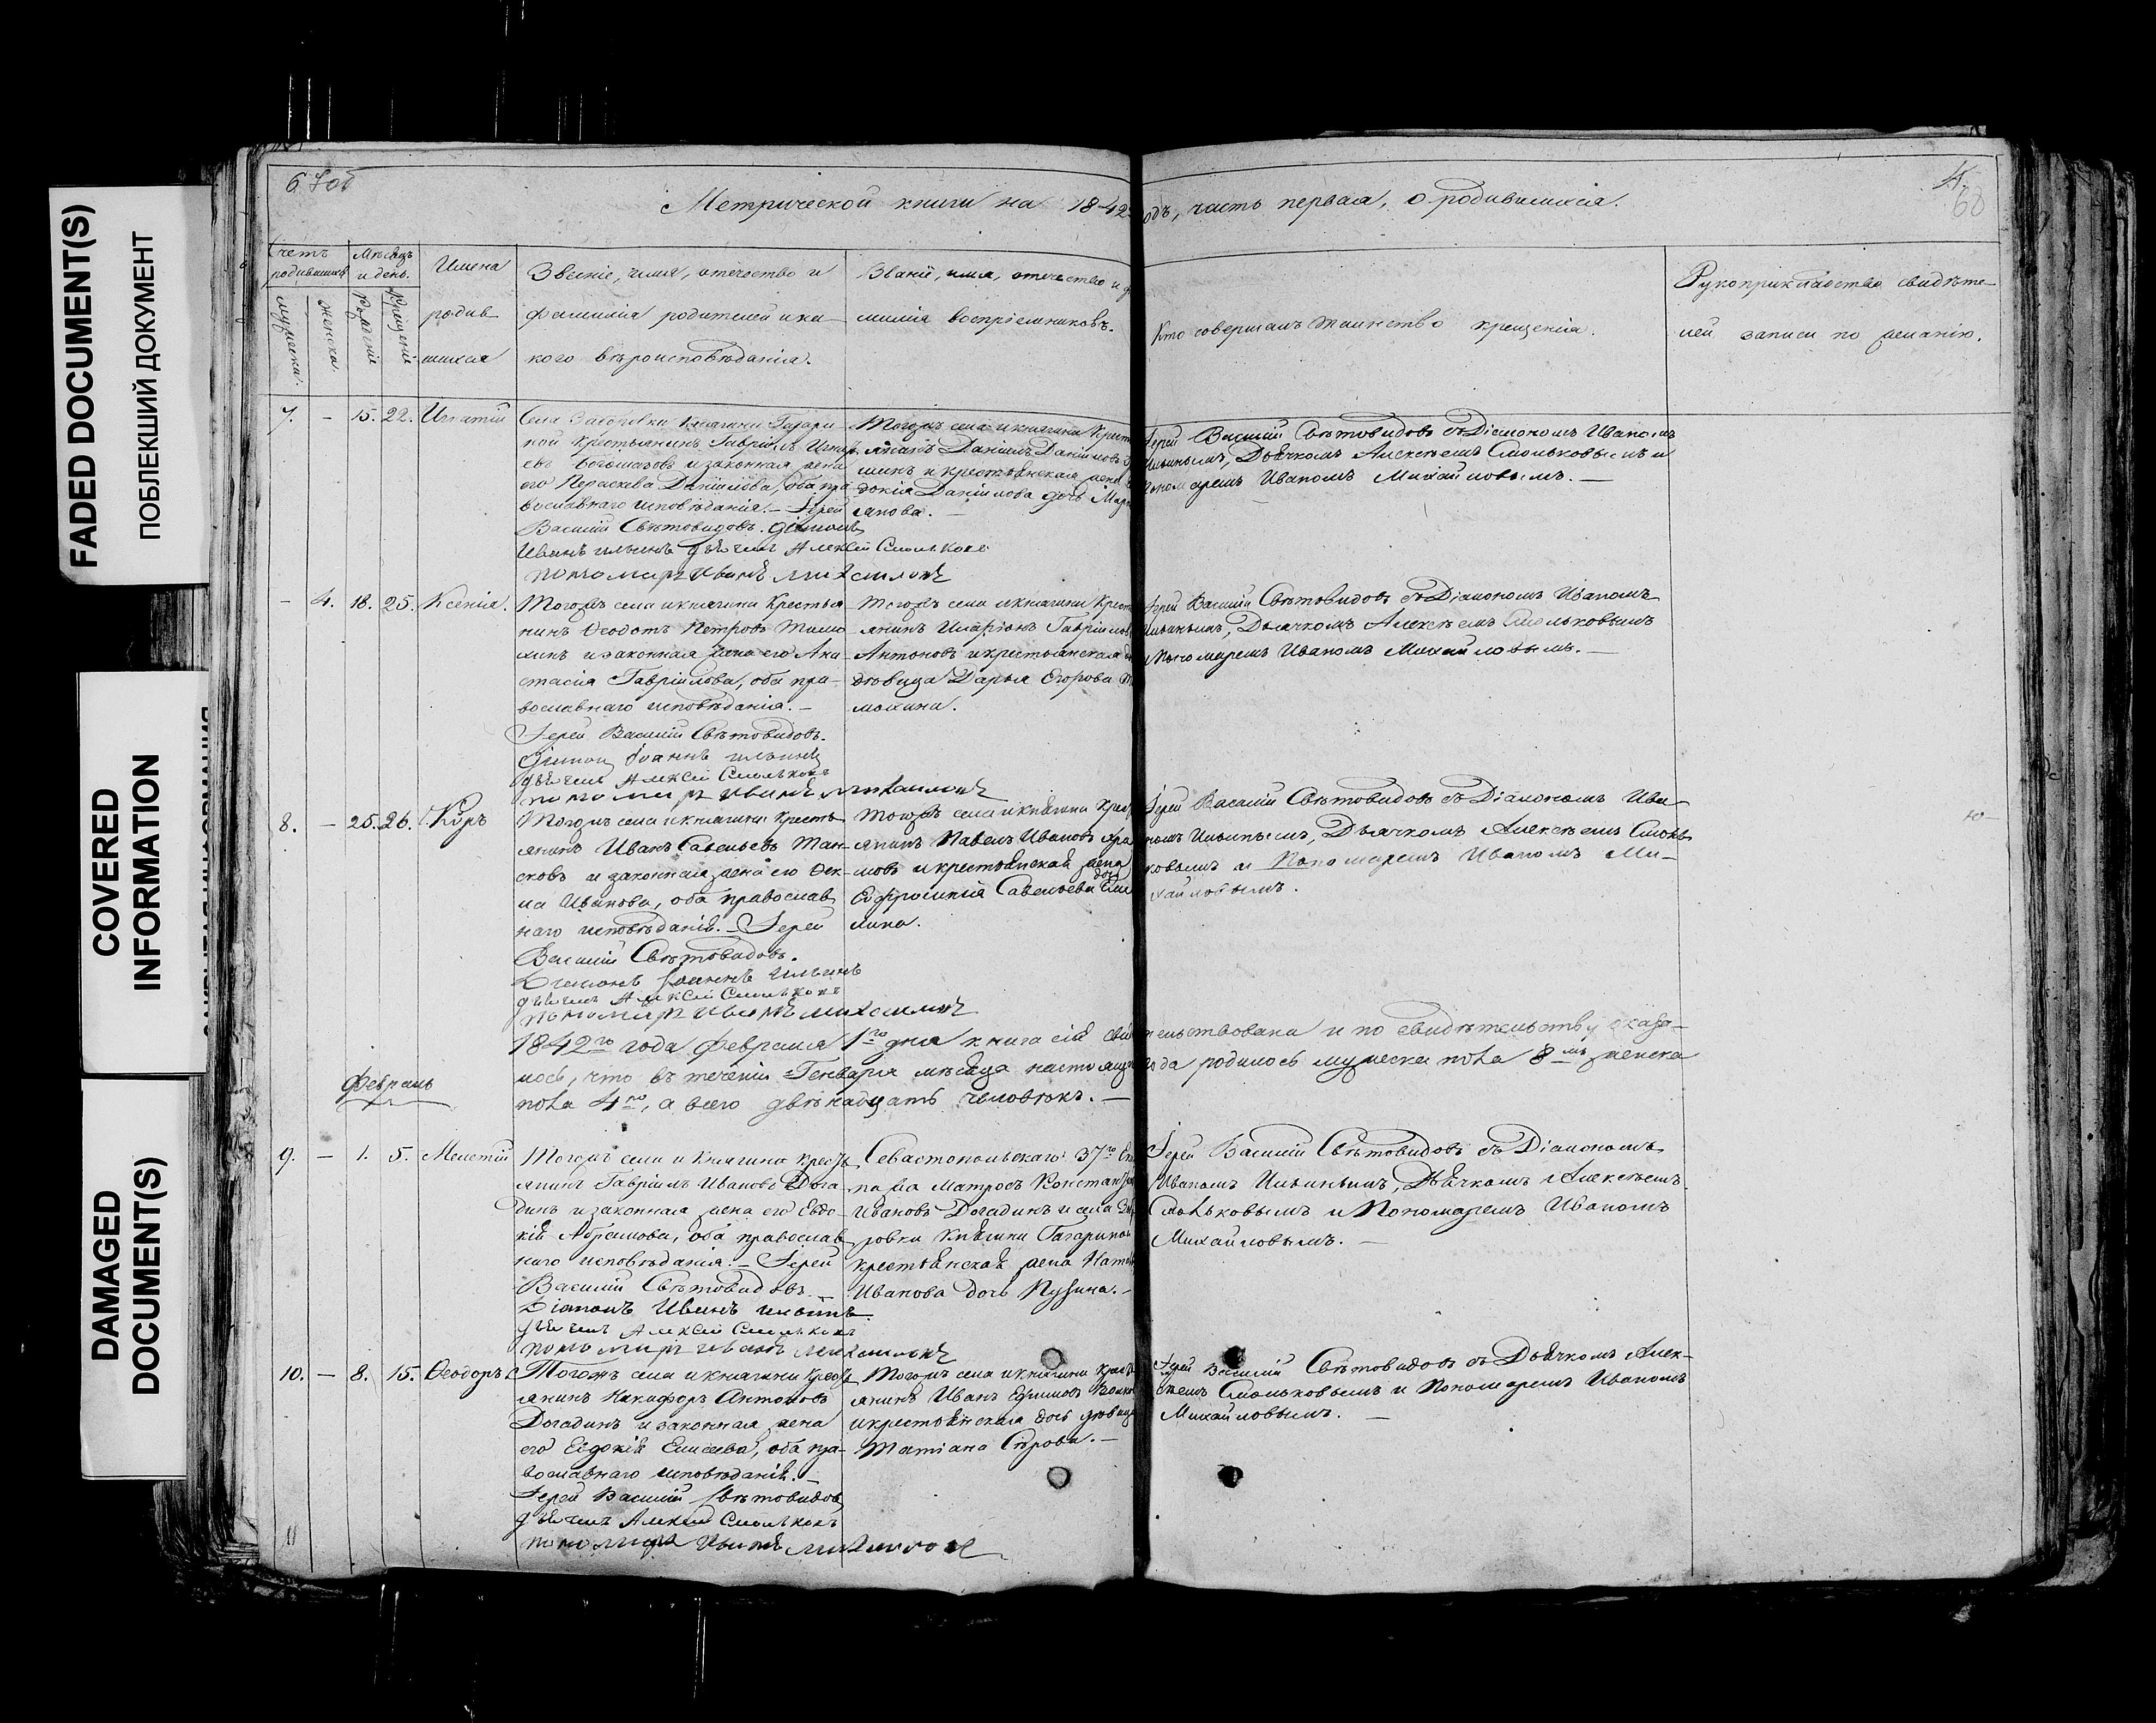 FADED DOCUMENT(S)
ПОБЛЕКШИЙ ДОКУМЕНТ
COVERED
INFORMATION
DAMAGED
DOCUMENT(S)
67об
4.
68
Метрической книги на 1842 одъ, часть первая, о родившихся.
Счетъ
родившихся
Мѣсяцъ
и день.
Имена
родив
шихся
мужеска.
женска.
рожденія
крещенія
Званіе, имя, отечество и
фамилія родителей и ка-
кого вѣроисповѣданія.
Званіе, имя, отечество и ф
милія воспріемниковъ.
Кто совершалъ таинство крещенія.
Рукоприкладство свидѣте-
лей записи по желанію.
7. – 15. 22. Игнатій
Села княгини Гагари
ной крестьянинъ Гавріилъ
и законная жена
его Параскева Даніилова, оба пра
вославнаго исповѣданія. – Іерей
Василій Свѣтовидовъ. діаконъ
Иванъ Ильинъ дьячекъ Алексѣй Смольковъ
пономарь Иванъ Михайловъ
Тогожъ села и княгини Крест
янинъ Даніилъ Даніиловъ
шинъ и крестьянская жена
докія Данилова дочь Мар
янова.
Іерей Василій Свѣтовидовъ съ Діакономъ Иваномъ
Ильинымъ, Дьячкомъ Алексѣемъ Смольковымъ и
Пономаремъ Иваномъ Михайловымъ. –
– 4. 18. 25. Ксенія.
Тогожъ села и княгини Крестья
нинъ Ѳеодотъ Петровъ Тимо
хинъ и законная жена его Ана
стасія Гавріилова, оба пра-
вославнаго исповѣданія. –
Іерей Василій Свѣтовидовъ.
Діаконъ Іоаннъ Ильинъ
дьячекъ Алексѣй Смольковъ
пономарь Иванъ Михайловъ
Тогожъ села и княгини Крест
янинъ Иларіонъ Гавріиловъ
Антоновъ и крестьянская д
дѣвица Дарья Егорова Ти
мохина.
Іерей Василій Свѣтовидовъ съ Діакономъ Иваномъ
Ильинымъ, Дьячкомъ Алексѣемъ Смольковымъ
и Пономаремъ Иваномъ Михайловымъ. –
8. – 25. 26. Кѵръ
Тогожъ села и княгини Кресть
янинъ Иванъ Савельевъ Тан-
сковъ и законная жена его Ѳек-
ла Иванова, оба православ
наго исповѣданія. – Іерей
Василій Свѣтовидовъ.
Діаконъ Іоаннъ Ильинъ
дьячекъ Алексѣй Смольковъ
пономарь Иванъ Михайловъ
Тогожъ села и княгини Крест
янинъ Павелъ Ивановъ Хра
мовъ и крестьянская жена
Ефросинія Савельева дочь
лина.
Іерей Василій Свѣтовидовъ съ Діакономъ Ива-
номъ Ильинымъ, Дьячкомъ Алексѣемъ Смоль
ковымъ и Пономаремъ Иваномъ Ми-
хайловымъ.
1842го года февраля 1го дня книга сія сви тельствована и по свидѣтельству оказа-
лось, что въ теченіи Генваря мѣсяца настоящ года родилось мужеска пола 8мь женска
пола 4ре, а всего двѣнадцать человѣкъ. –
Февраль
9. – 1. 5. Мелетій
Тогожъ села и Княгини Кресть
янинъ Гавріилъ Ивановъ Дога
динъ и законная жена его Евдо-
кія Абрамова, оба православ
наго исповѣданія. – Іерей
Василій Свѣтовидовъ. –
Діаконъ Иванъ Ильинъ.
дьячекъ Алексѣй Смольковъ
пономарь Иванъ Михайловъ
Севастопольскаго 37го Эки
пажа Матросъ Констан
Ивановъ Догадинъ и села
ровки Княгини Гагариной
крестьянская жена Натал
Иванова дочь Пузина. –
Іерей Василій Свѣтовидовъ съ Діакономъ
Иваномъ Ильинымъ, Дьячкомъ Алексѣемъ
Смольковымъ и Пономаремъ Иваномъ
Михайловымъ. –
10. – 8. 15. Ѳеодоръ
Тогожъ села и княгини Кресть
янинъ Никифоръ Антоновъ
Догадинъ и законная жена
его Евдокія Елисеева, оба пра-
вославнаго исповѣданія. –
Іерей Василій Свѣтовидовъ
дьячекъ Алексѣй Смольковъ
пономарь Иванъ Михайловъ
Тогожъ села и княгини Крест
янинъ Иванъ Ефимовъ Волк
и крестьянская дочь дѣвица
Татіана Сѣрова. –
Іерей Василій Свѣтовидовъ съ Дьячкомъ Алек-
сѣемъ Смольковымъ и Пономаремъ Иваномъ
Михайловымъ. –
11